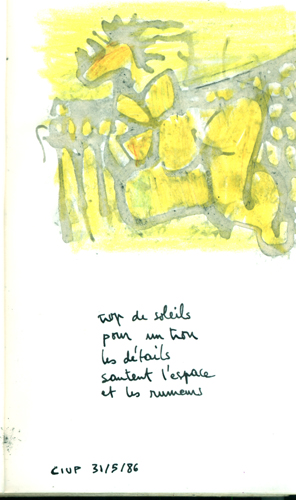 trop de soleils
pour un trou
les détails
sautent l'espace
et les rumeurs
CIUP 31/5/86